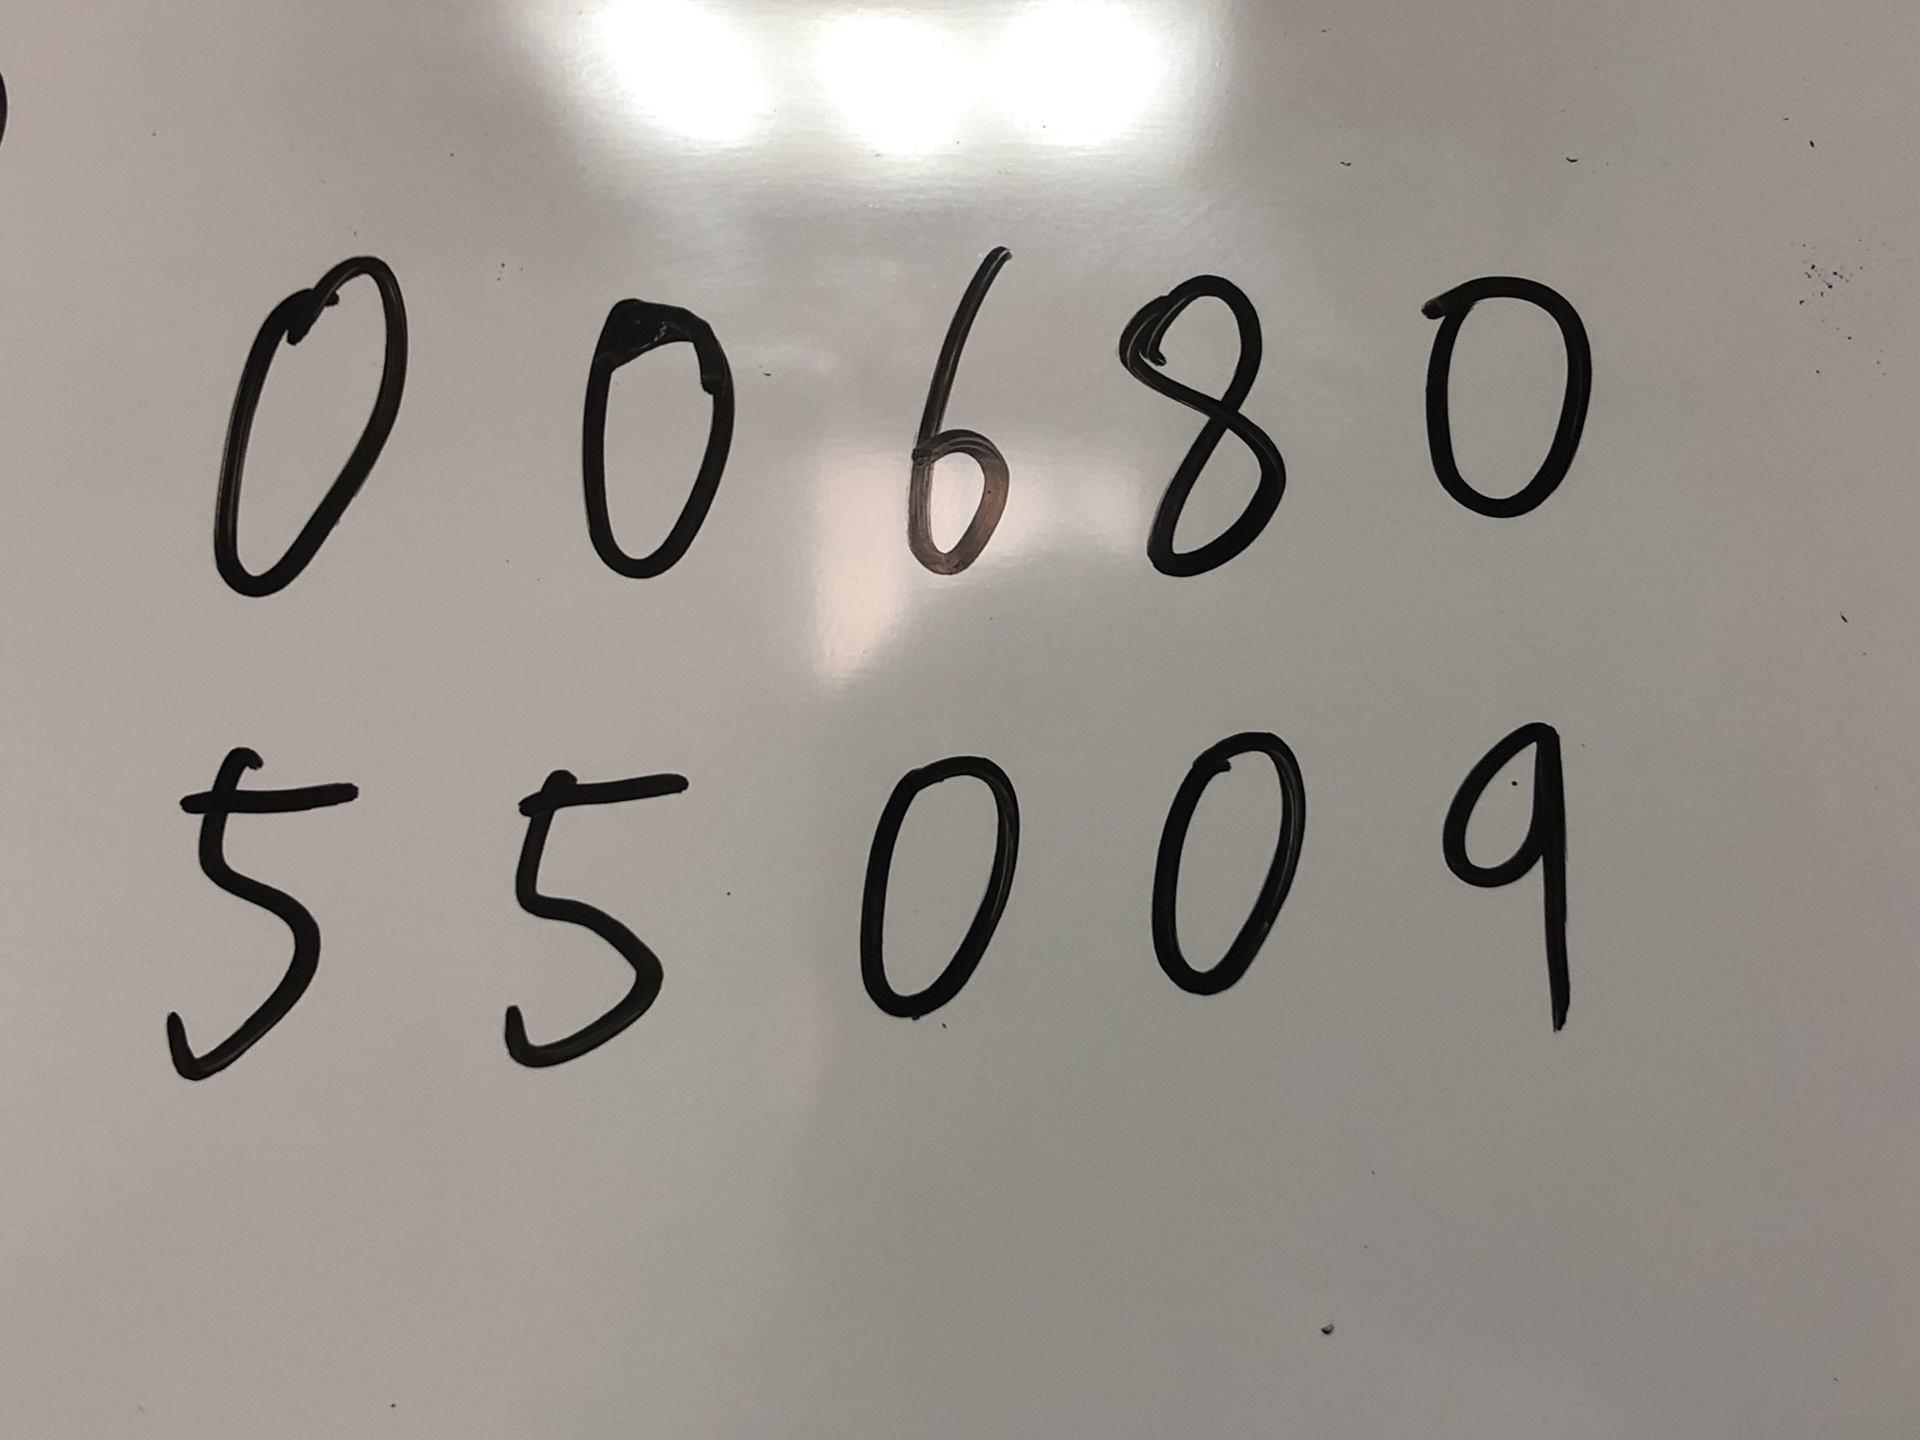 0 0 6 8 0
5 5 0 0 9